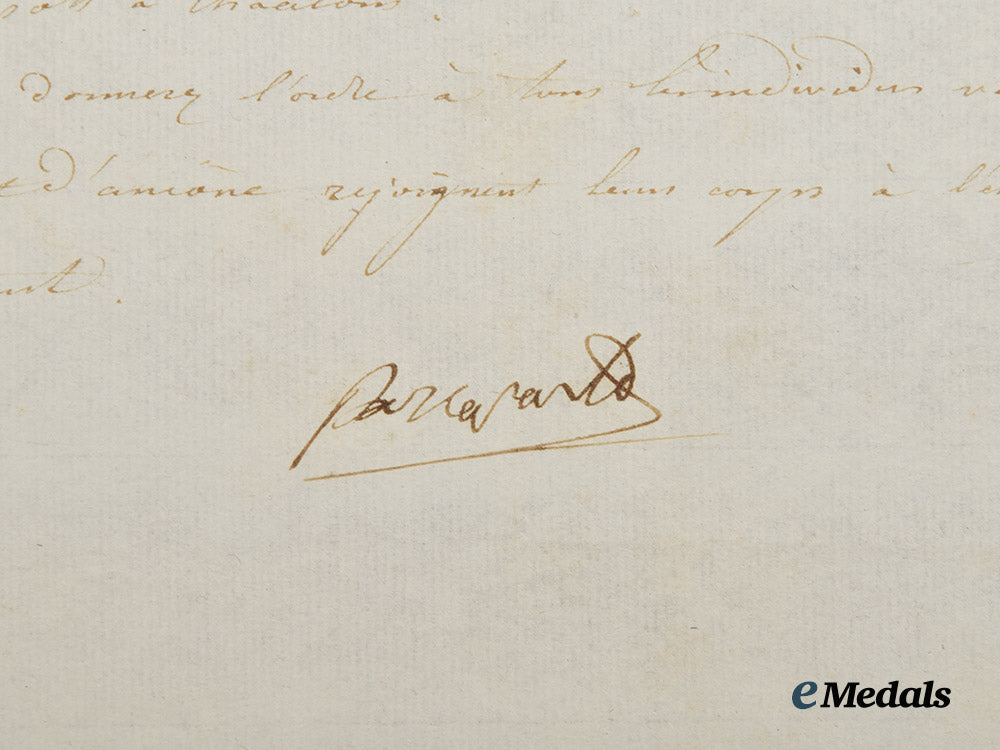 à
donnerez l'ordre à tous les individus
d'ancône rejoignent leurs corps à l'
Bonaparte
eMedals